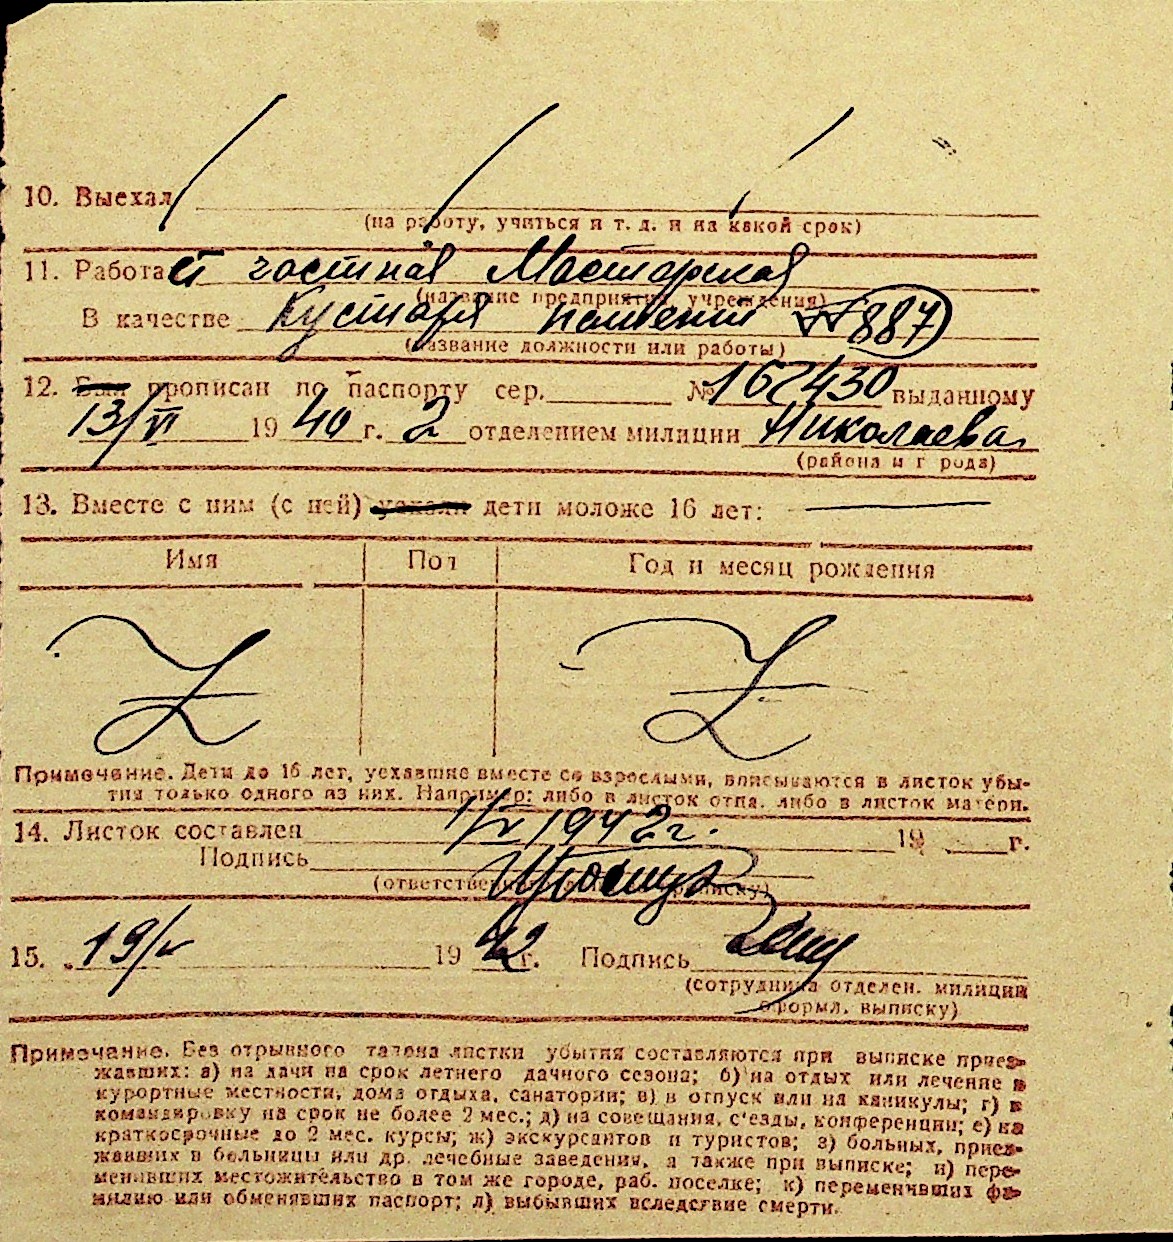 10. Выехал
(на работу, учиться и т. д. и на какой срок)
11. Работает частная Мастерская
(название предприятия, учреждения)
В качестве Кустаря 887
(название должности или работы)
12. Был прописан по паспорту сер. № 162430 выданному
13/VI 1940 г. 2 отделением милиции Николаева
(района и г рода)
13. Вместе с ним (с ней) уехали дети моложе 16 лет:
Имя Пол Год и месяц рождения
Z Z
Примечание. Дети до 16 лет, уехавшие вместе со взрослыми, вписываются в листок убы-
тия только одного из них. Например: либо в листок отца, либо в листок матери.
14. Листок составлен 1/V 1942 г. 19 г.
Подпись
(ответственного за прописку)
15. 19/V 1942 г. Подпись
(сотрудника отделен. милиции
оформл. выписку)
Примечание. Без отрывного талона листки убытия составляются при выписке приез-
жавших: а) на дачи на срок летнего дачного сезона; б) на отдых или лечение в
курортные местности, дома отдыха, санатории; в) в отпуск или на каникулы; г) в
командировку на срок не более 2 мес.; д) на совещания, с'езды, конференции; е) на
краткосрочные до 2 мес. курсы; ж) экскурсантов и туристов; з) больных, приез-
жавших в больницы или др. лечебные заведения, а также при выписке; и) пере-
менивших местожительство в том же городе, раб. поселке; к) переменивших фа-
милию или обменявших паспорт; л) выбывших вследствие смерти.